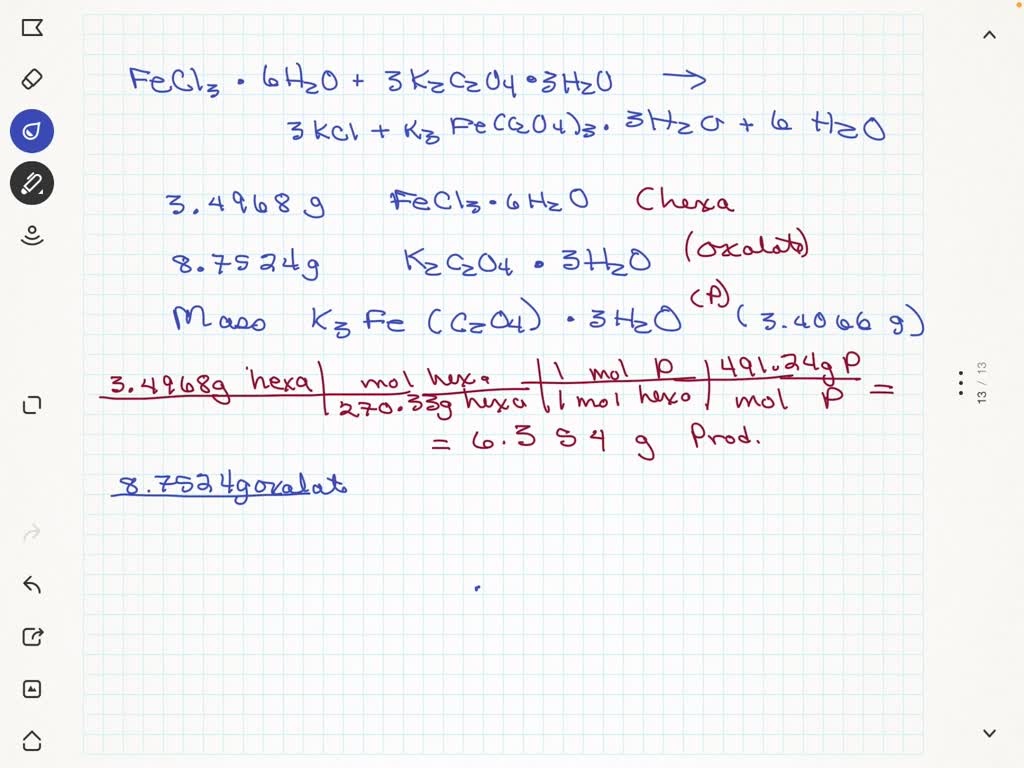 FeCl₃ · 6H₂O + 3K₂C₂O₄ · 3H₂O →
3 KCl + K₃ Fe(C₂O₄)₃ · 3H₂O + 6 H₂O
3.4968 g FeCl₃ · 6H₂O Chexa
8.7524g K₂C₂O₄ · 3H₂O (oxalato)
Maso K₃ Fe (C₂O₄) · 3H₂O (P) (3.4066 g)
3.4968g hexa | mol hexa | 1 mol P | 491.24g P =
270.33g hexa | 1 mol hexa | mol P
= 6.354 g Prod.
8.7524g oxalato
13 / 13